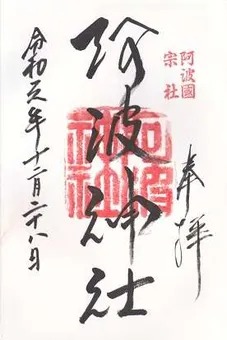 奉拝
阿波國
宗社
阿波神社
阿波神社
令和元年十二月二十八日